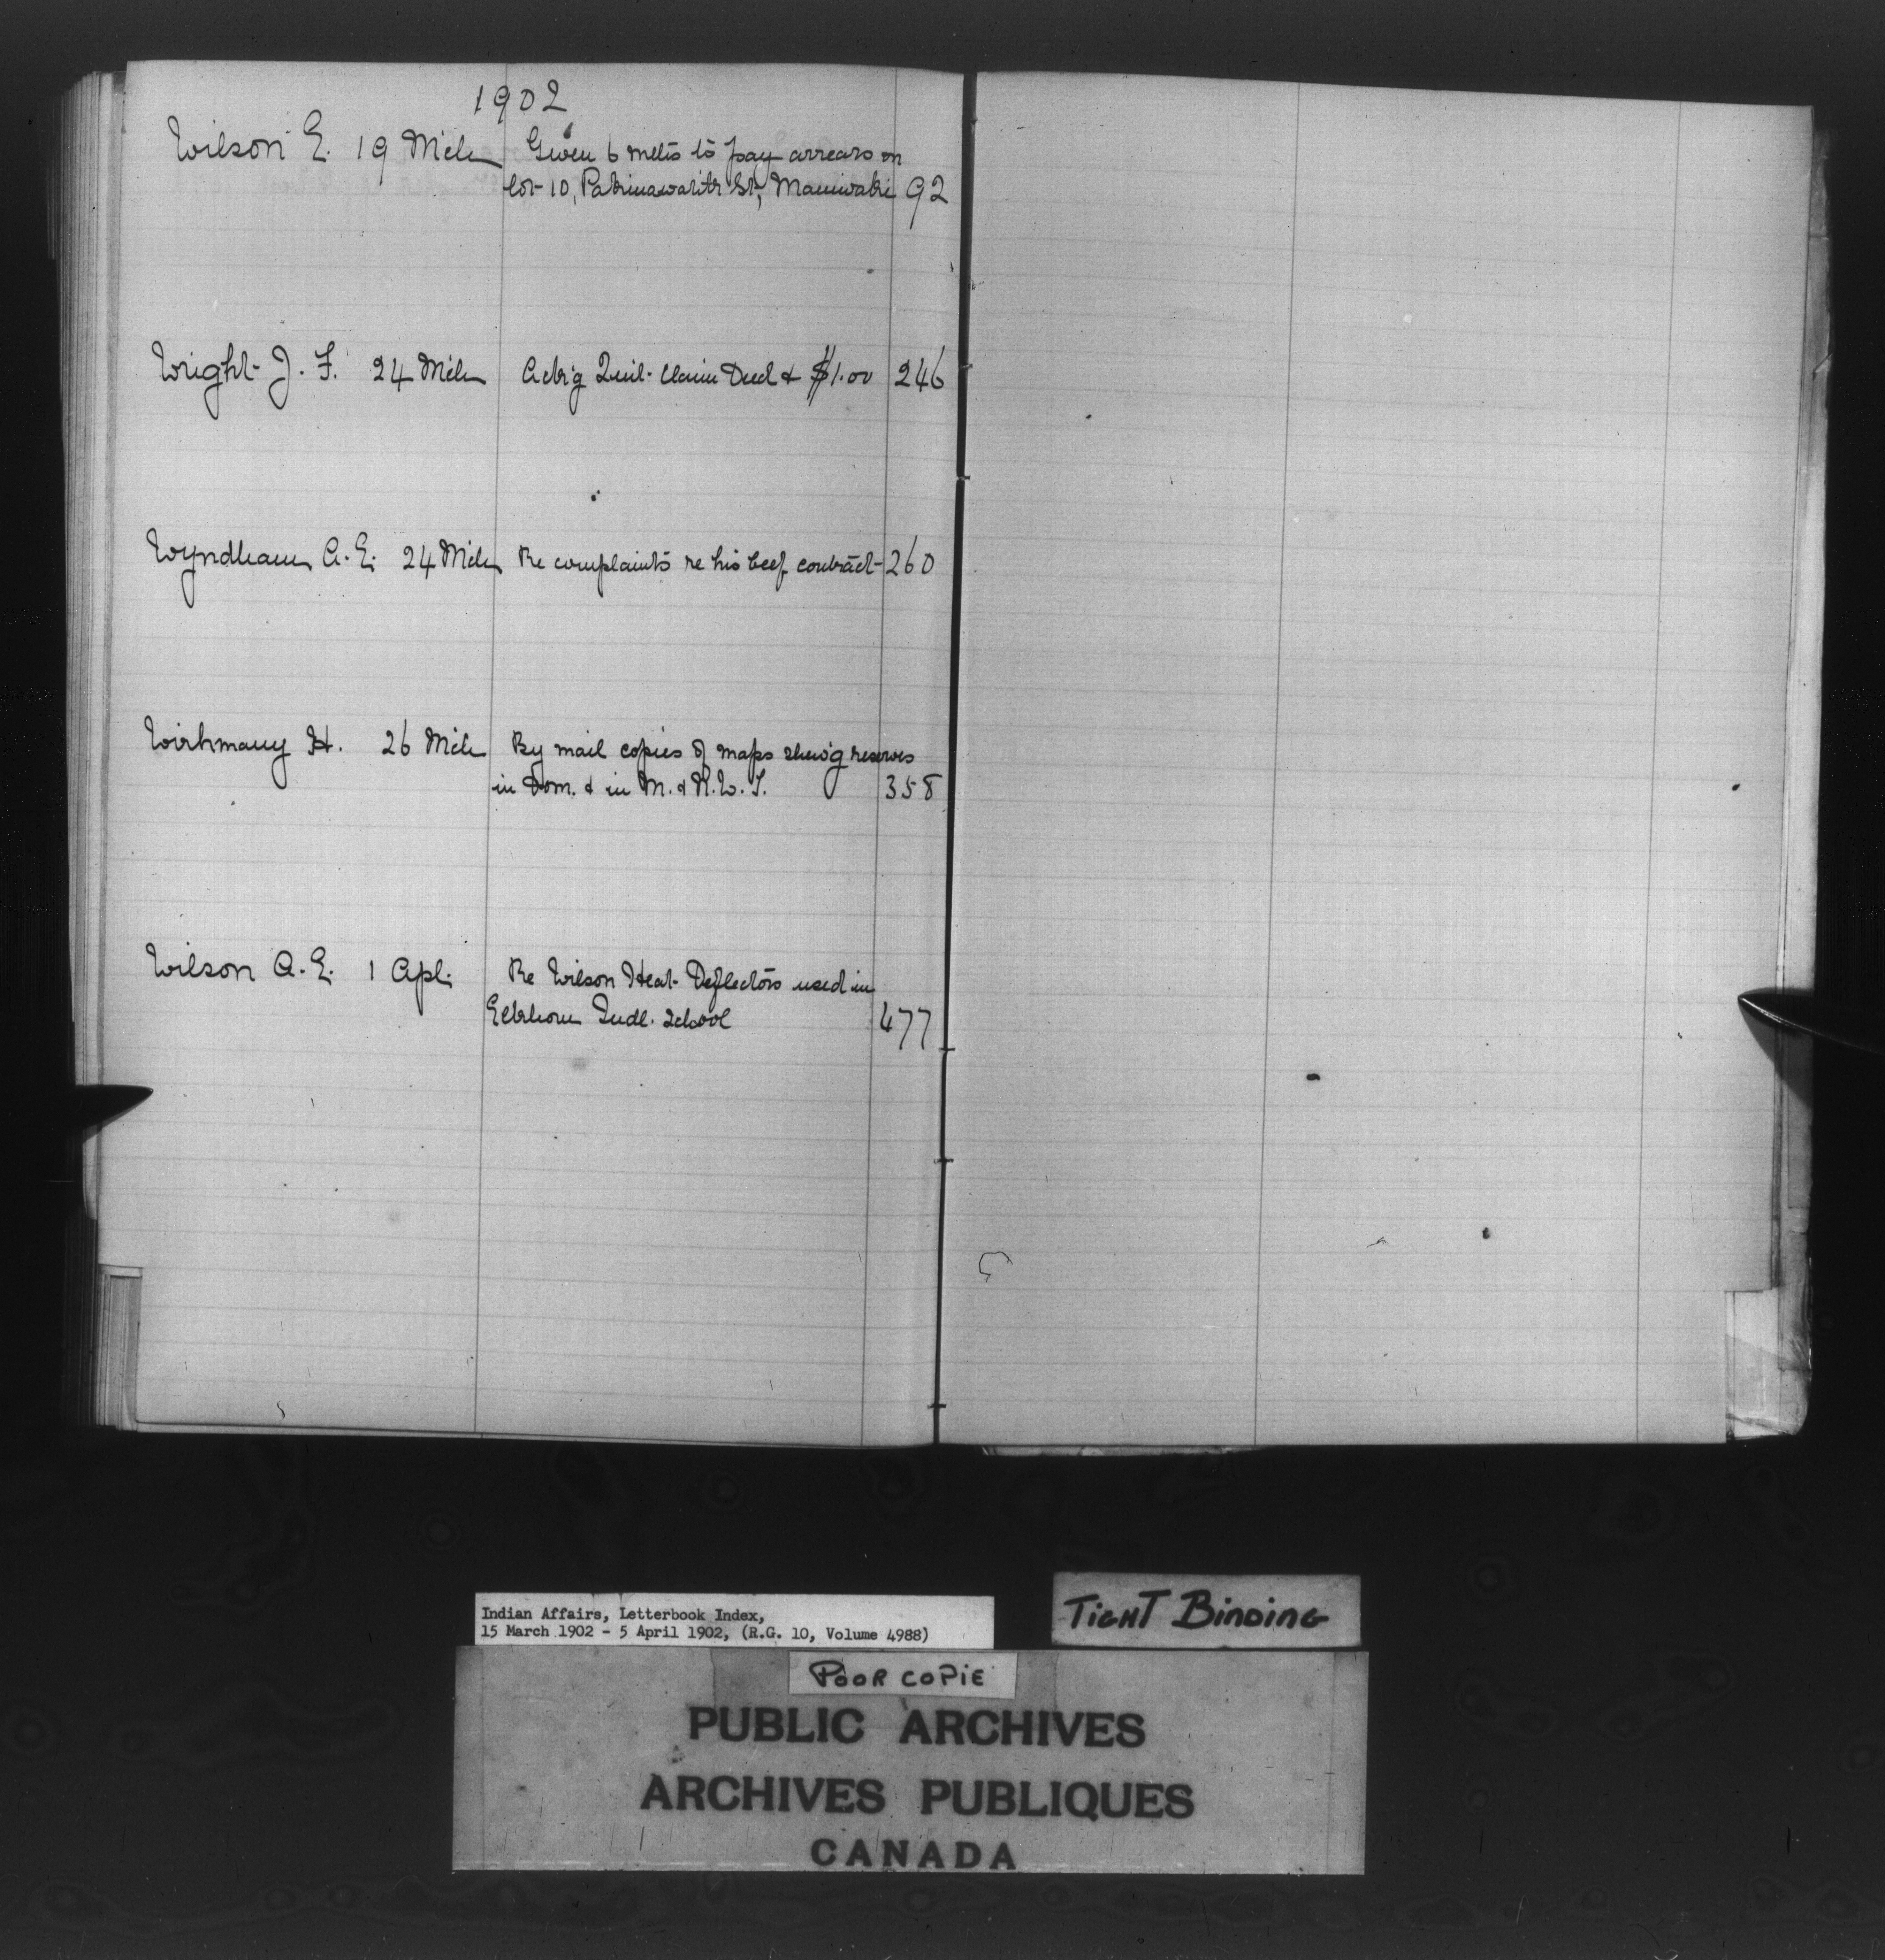 1902
Wilson E. 19 Mch Given 6 mths to pay arrears on
lot 10, St, Maniwaki 92
Wright J. F. 24 Mch Ackg Quit-claim Deed & $1.00 246
Wyndham A. E. 24 Mch Re complaints re his beef contract 260
H. 26 Mch By mail copies of maps shew'g reserves
in Dom. & in M. & N.W.T. 358
Wilson A. E. 1 Apl. Re Wilson Heat Deflectors used in
Elkhorn Indl. School 477
Indian Affairs, Letterbook Index,
15 March 1902 - 5 April 1902, (R.G. 10, Volume 4988)
TIGHT BINDING
POOR COPIE
PUBLIC ARCHIVES
ARCHIVES PUBLIQUES
CANADA